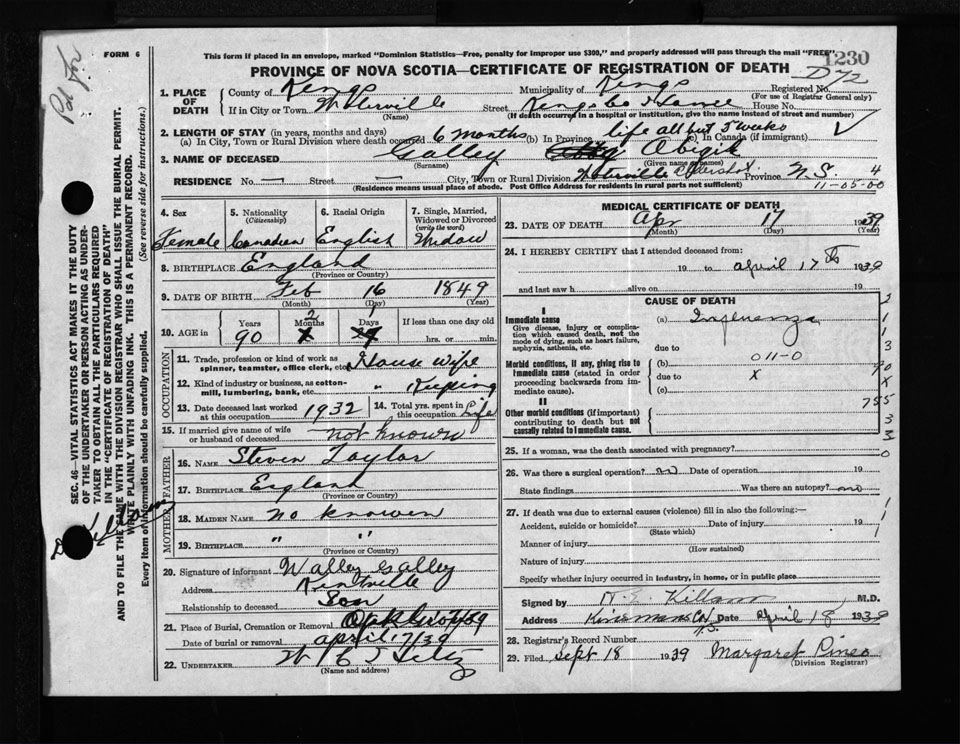 Pot for
FORM 6
This form if placed in an envelope, marked "Dominion Statistics—Free, penalty for improper use $300," and properly addressed will pass through the mail "FREE".
1230
PROVINCE OF NOVA SCOTIA—CERTIFICATE OF REGISTRATION OF DEATH
D72
1. PLACE OF DEATH
County of Kings Municipality of Kings Registered No.
(For use of Registrar General only)
If in City or Town Street House No.
(Name) (If death occurred in a hospital or institution, give the name instead of street and number)
2. LENGTH OF STAY (in years, months and days)
(a) In City, Town or Rural Division where death occurred 6 months (b) In Province life all but 5 weeks (c) In Canada (if immigrant)
3. NAME OF DECEASED Galley Abigil
(Surname) (Given name or names)
RESIDENCE No. — Street — City, Town or Rural Division Province N.S. 4
(Residence means usual place of abode. Post Office Address for residents in rural parts not sufficient) 11-05-00
SEC. 46—VITAL STATISTICS ACT MAKES IT THE DUTY OF THE UNDERTAKER OR PERSON ACTING AS UNDERTAKER TO OBTAIN ALL THE PARTICULARS REQUIRED IN THE "CERTIFICATE OF REGISTRATION OF DEATH" AND TO FILE THE SAME WITH THE DIVISION REGISTRAR WHO SHALL ISSUE THE BURIAL PERMIT.
WRITE PLAINLY WITH UNFADING INK. THIS IS A PERMANENT RECORD.
Every item of information should be carefully supplied. (See reverse side for instructions.)
4. Sex
Female
5. Nationality
(Citizenship)
Canadian
6. Racial Origin
English
7. Single, Married, Widowed or Divorced
(write the word)
Widow
8. BIRTHPLACE England
(Province or Country)
9. DATE OF BIRTH Feb 16 1849
(Month) (Day) (Year)
10. AGE in
Years Months Days If less than one day old
90 2 1 hrs. or min.
OCCUPATION
11. Trade, profession or kind of work as spinner, teamster, office clerk, etc. House Wife
12. Kind of industry or business, as cotton-mill, lumbering, bank, etc. " Keeping
13. Date deceased last worked at this occupation 1932
14. Total yrs. spent in this occupation Life
15. If married give name of wife or husband of deceased not known
FATHER
16. NAME Steven Taylor
17. BIRTHPLACE England
(Province or Country)
MOTHER
18. MAIDEN NAME no known
19. BIRTHPLACE " "
(Province or Country)
20. Signature of informant Walley Galley
Address Kentville
Relationship to deceased Son
21. Place of Burial, Cremation or Removal Oak Grove
Date of burial or removal april 17/39
22. UNDERTAKER
(Name and address)
MEDICAL CERTIFICATE OF DEATH
23. DATE OF DEATH Apr 17 1939
(Month) (Day) (Year)
24. I HEREBY CERTIFY that I attended deceased from:
19 to april 17th 1939
and last saw h alive on 19
CAUSE OF DEATH
I
Immediate cause
Give disease, injury or complication which caused death, not the mode of dying, such as heart failure, asphyxia, asthenia, etc.
(a) Influenza
due to
Morbid conditions, if any, giving rise to immediate cause (stated in order proceeding backwards from immediate cause).
(b) 011-0
due to X
(c)
II
Other morbid conditions (if important) contributing to death but not causally related to immediate cause.
2
1
1
3
90
X
755
3
3
0
1
1
1
25. If a woman, was the death associated with pregnancy?
26. Was there a surgical operation? no Date of operation 19
State findings Was there an autopsy? no
27. If death was due to external causes (violence) fill in also the following:—
Accident, suicide or homicide? Date of injury 19
(State which)
Manner of injury
(How sustained)
Nature of injury
Specify whether injury occurred in industry, in home, or in public place
Signed by Killam M.D.
Address N.S. Date April 18 1939
28. Registrar's Record Number
29. Filed Sept 18 1939 Margaret Pineo
(Division Registrar)